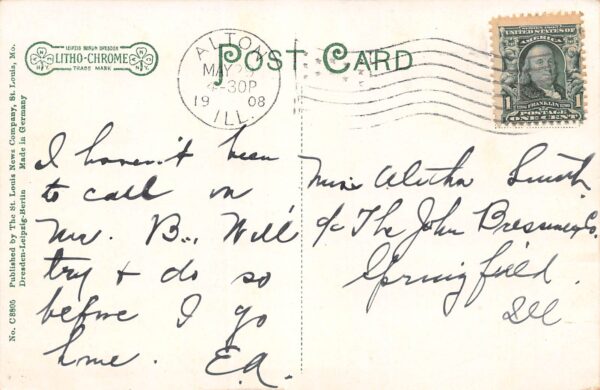 LEIPZIG BERLIN DRESDEN
LITHO-CHROME
TRADE MARK
POST CARD
ALTON
MAY
4-30P
19 08
ILL.
UNITED STATES OF AMERICA
FRANKLIN
1 1
POSTAGE
ONE CENT
No. C8805 Published by The St. Louis News Company, St. Louis, Mo.
Dresden-Leipzig-Berlin Made in Germany
I haven't been
to call on
Mr. B.. Will
try & do so
before I go
home. E.A.
Miss Smith
c/o The John Co.
Springfield.
Ill